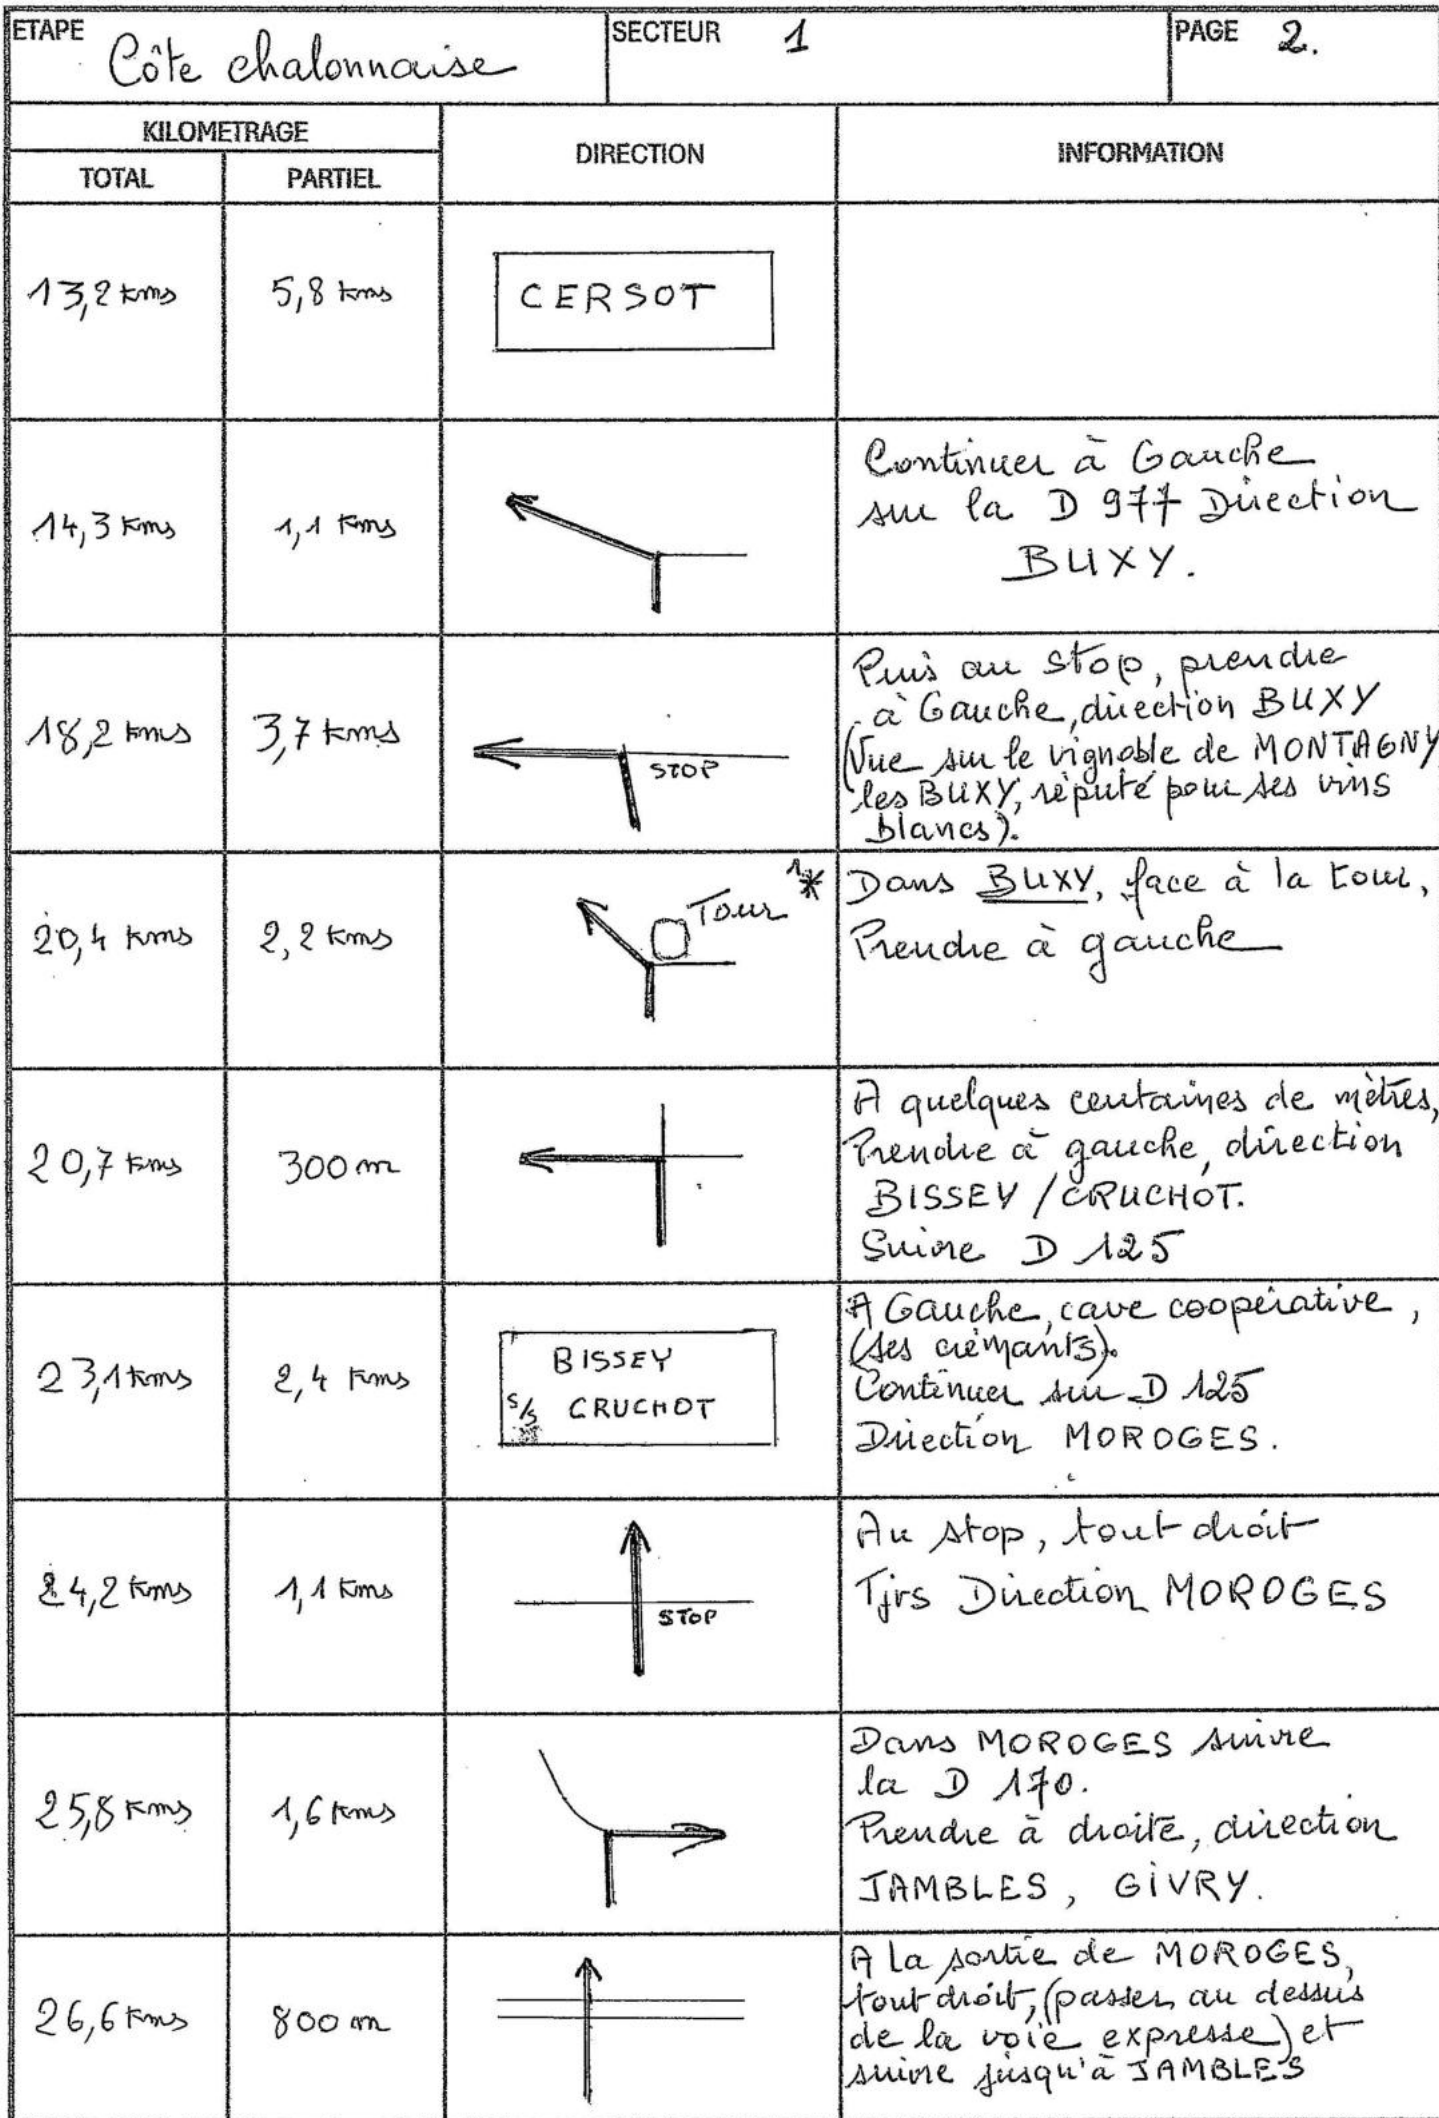 ETAPE Côte chalonnaise SECTEUR 1 PAGE 2.
KILOMETRAGE DIRECTION INFORMATION
TOTAL PARTIEL
13,2 kms 5,8 kms CERSOT
14,3 kms 1,1 kms
Continuer à Gauche
sur la D 977 Direction
BUXY.
18,2 kms 3,7 kms STOP
Puis au stop, prendre
à Gauche, direction BUXY
(Vue sur le vignoble de MONTAGNY
les BUXY, réputé pour ses vins
blancs).
20,4 kms 2,2 kms Tour 1*
Dans BUXY, face à la tour,
Prendre à gauche
20,7 kms 300 m
A quelques centaines de mètres,
Prendre à gauche, direction
BISSEY / CRUCHOT.
Suivre D 125
23,1 kms 2,4 kms
BISSEY
s/s CRUCHOT
A Gauche, cave coopérative,
(ses crémants).
Continuer sur D 125
Direction MOROGES.
24,2 kms 1,1 kms STOP
Au stop, tout droit
Tjrs Direction MOROGES
25,8 kms 1,6 kms
Dans MOROGES suivre
la D 170.
Prendre à droite, direction
JAMBLES, GIVRY.
26,6 kms 800 m
A la sortie de MOROGES,
tout droit, (passer au dessus
de la voie expresse) et
suivre jusqu'à JAMBLES